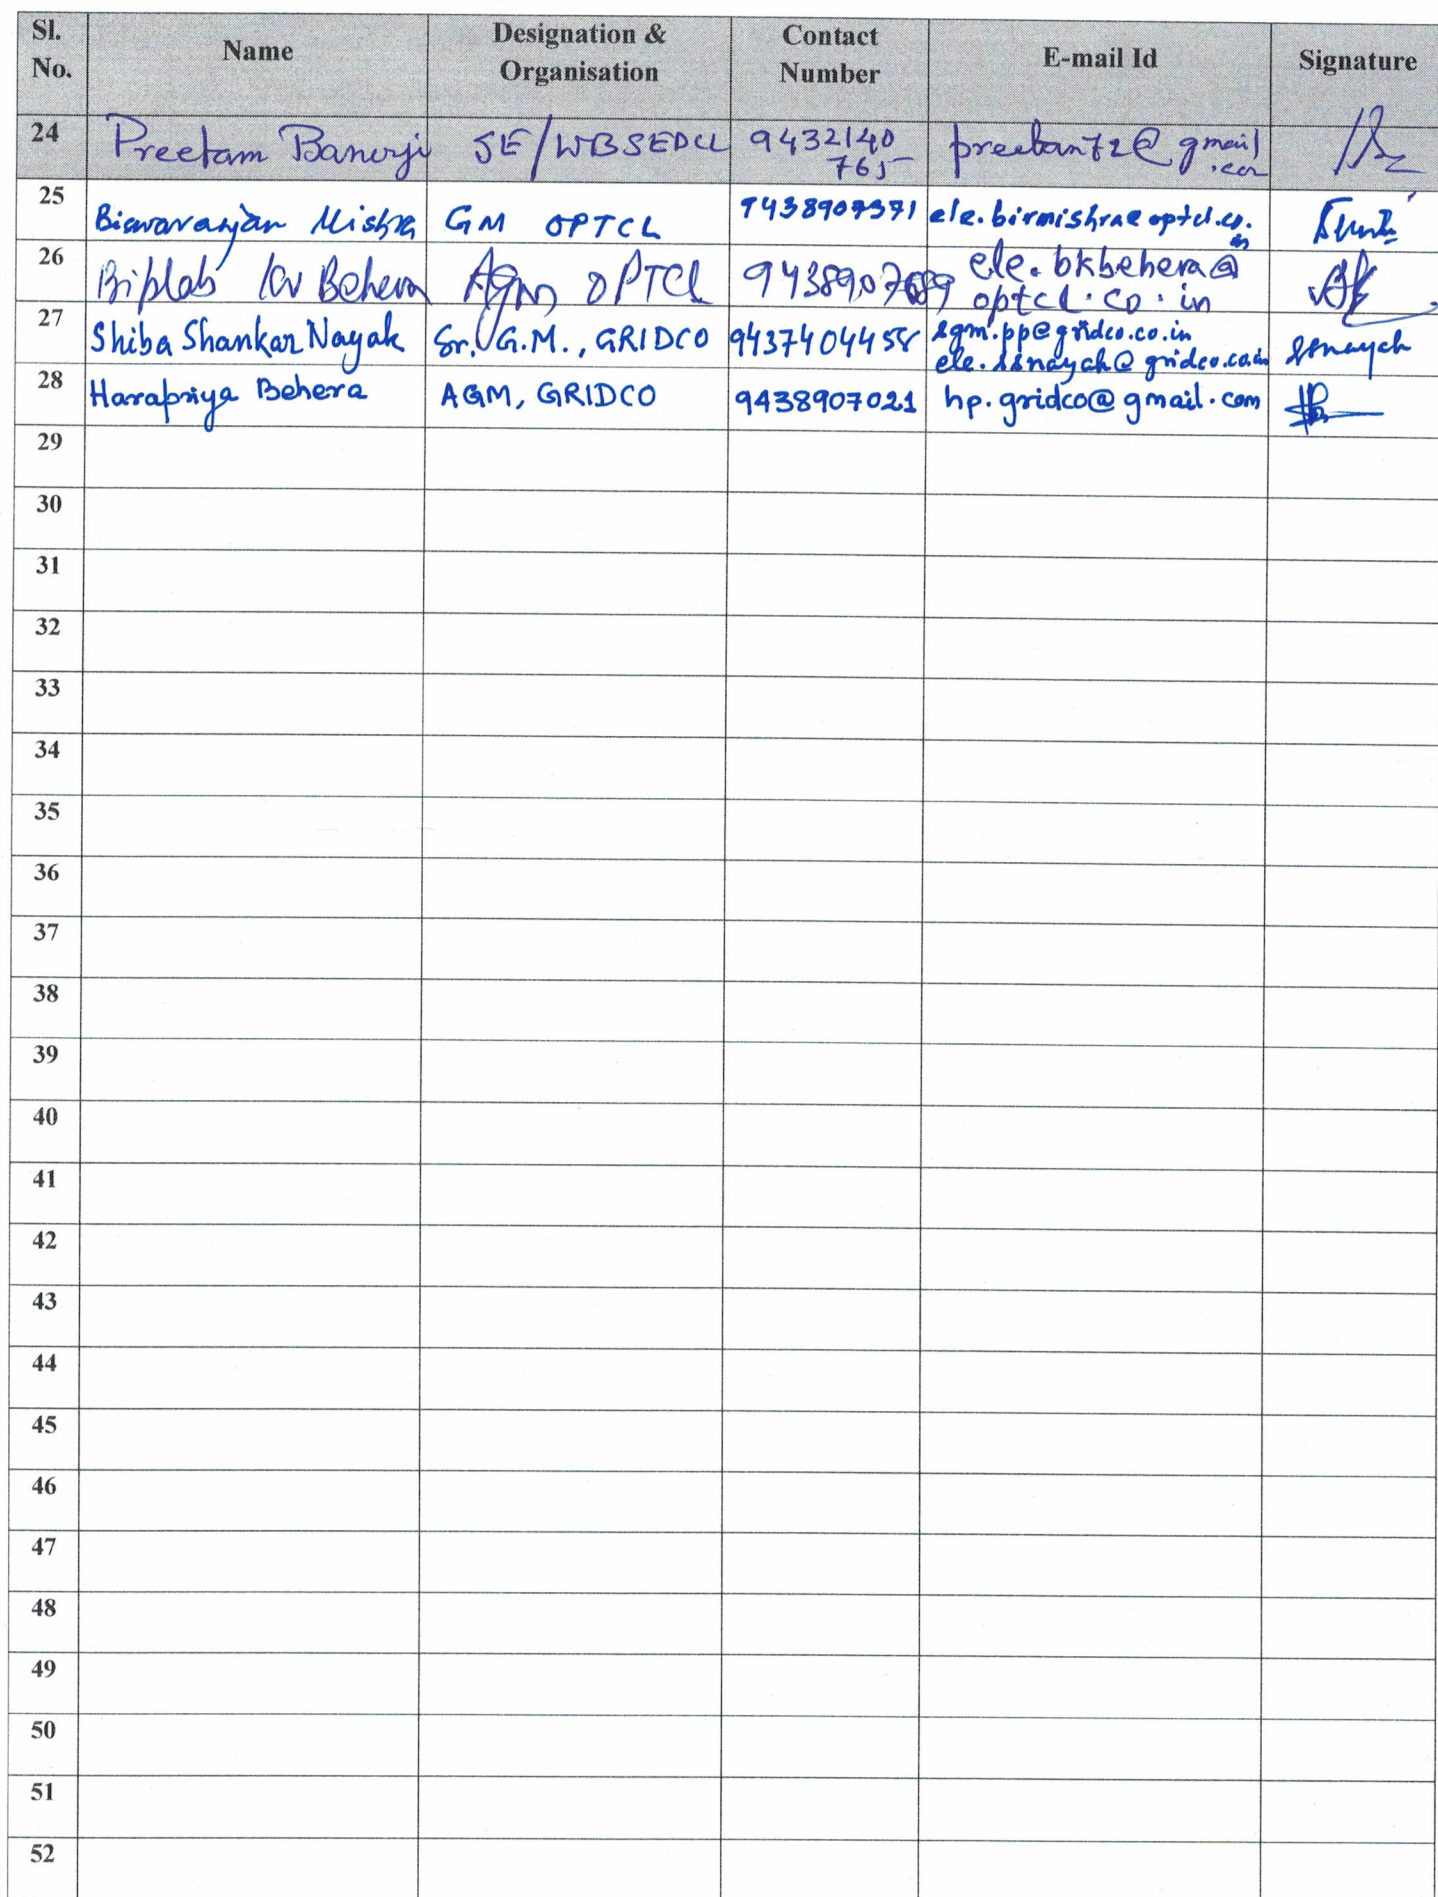 Sl. No. Name Designation & Organisation Contact Number E-mail Id Signature
24 Preetam Banerji SE/WBSEDCL 9432140765 preetam72@gmail.com
25 Biswaranjan Mishra GM OPTCL 9438907371 ele.birmishra@optcl.co.in
26 Biplab Kr Behera AGM OPTCL ele.bkbehera@optcl.co.in
27 Shiba Shankar Nayak Sr. G.M., GRIDCO 9437404458 sgm.pp@gridco.co.in
ele.ssnayak@gridco.co.in ssnayak
28 Harapriya Behera AGM, GRIDCO 9438907021 hp.gridco@gmail.com
29
30
31
32
33
34
35
36
37
38
39
40
41
42
43
44
45
46
47
48
49
50
51
52